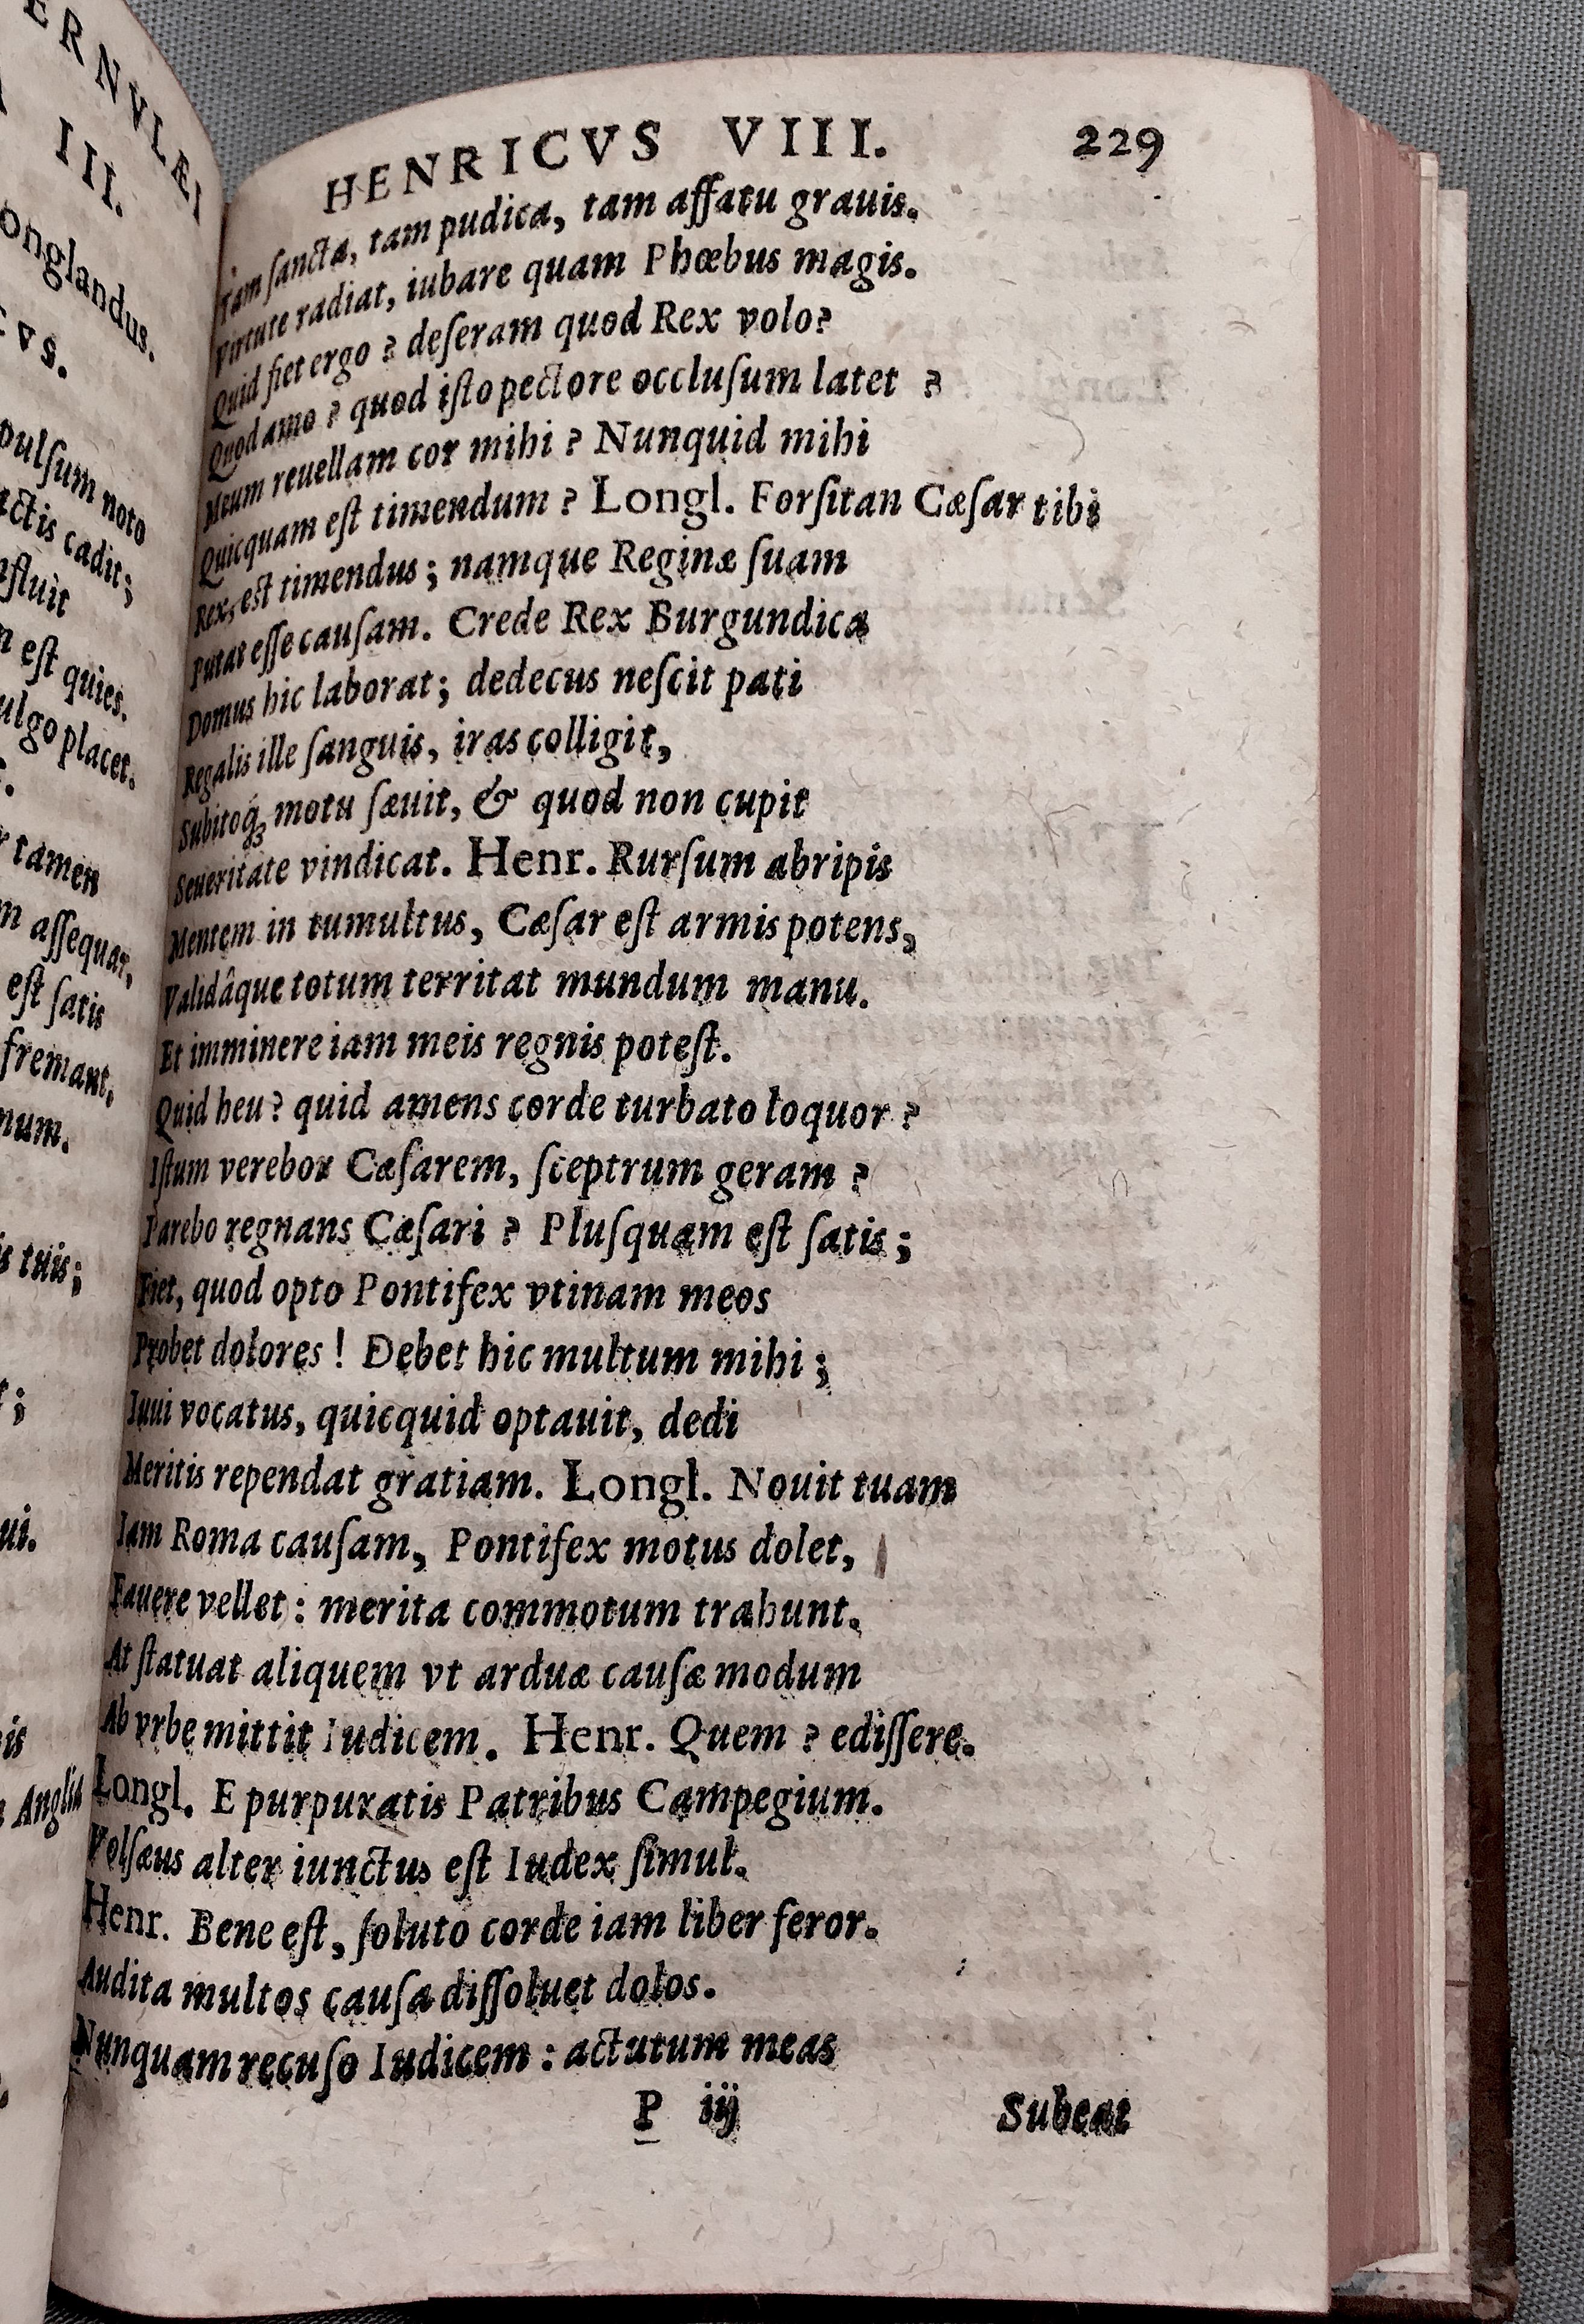 ERNVLÆI
III.
onglandus.
VS.
pulſum noto
actis cadit;
nfluit
eſt quies.
ulgo placet.
tamen
aſſequar,
eſt ſatis
fremant,
num.
s tuis;
ui.
Anglia
HENRICVS VIII. 229
Tam ſancta, tam pudica, tam affatu grauis.
Virtute radiat, iubare quam Phœbus magis.
Quid fiet ergo? deſeram quod Rex volo?
Quod amo? quod iſto pectore occluſum latet?
Meum reuellam cor mihi? Nunquid mihi
Quicquam eſt timendum? Longl. Forſitan Cæſar tibi
Rex, eſt timendus; namque Reginæ ſuam
Putat eſſe cauſam. Crede Rex Burgundica
Domus hic laborat; dedecus neſcit pati
Regalis ille ſanguis, iras colligit,
Subitoq́ꝫ motu ſæuit, & quod non cupit
Seueritate vindicat. Henr. Rurſum abripis
Mentem in tumultus, Cæſar eſt armis potens,
Validâque totum territat mundum manu.
Et imminere iam meis regnis poteſt.
Quid heu? quid amens corde turbato loquor?
Iſtum verebor Cæſarem, ſceptrum geram?
Parebo regnans Cæſari? Pluſquam eſt ſatis;
Fiet, quod opto Pontifex vtinam meos
Probet dolores! Debet hic multum mihi;
Iuui vocatus, quicquid optauit, dedi
Meritis rependat gratiam. Longl. Nouit tuam
Iam Roma cauſam, Pontifex motus dolet,
Fauere vellet: merita commotum trahunt.
At ſtatuat aliquem vt arduæ cauſæ modum
Ab vrbe mittit Iudicem. Henr. Quem? ediſſere.
Longl. E purpuratis Patribus Campegium.
Volſæus alter iunctus eſt Iudex ſimul.
Henr. Bene eſt, ſoluto corde iam liber feror.
Audita multos cauſa diſſoluet dolos.
Nunquam recuſo Iudicem: actutum meas
P iij Subeat